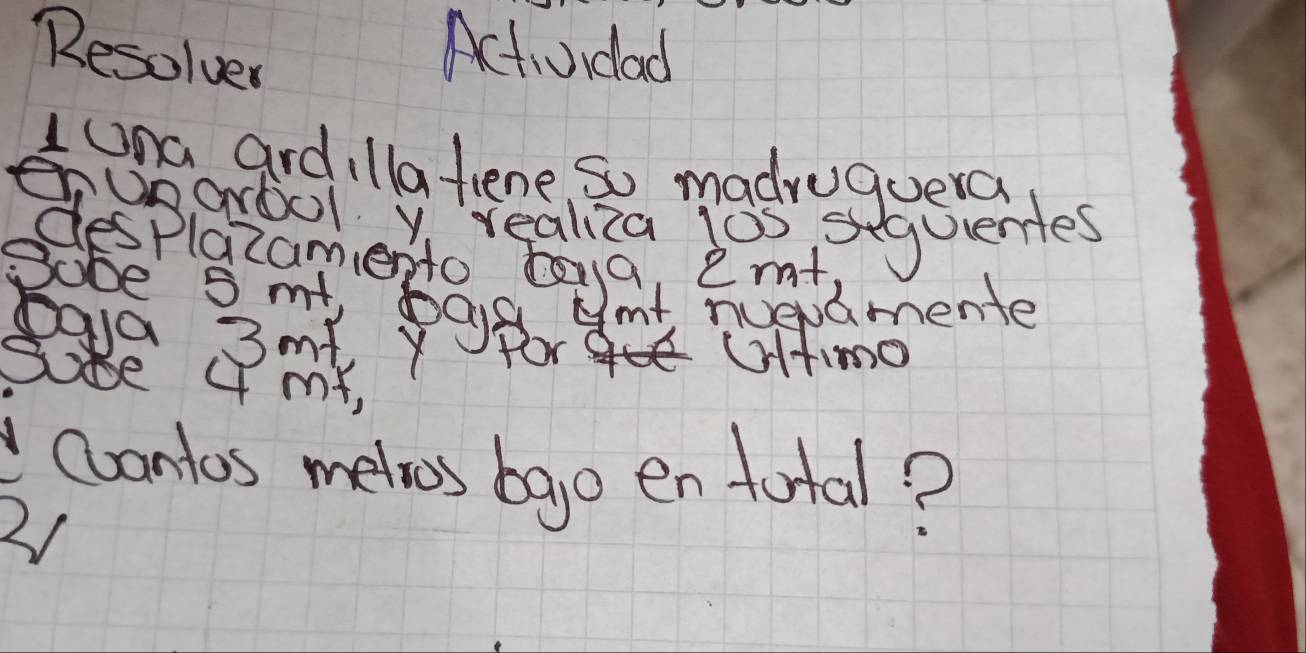 Resolver Actividad
1 Una ardilla tiene su madruguera
en un arbol. y realiza los siguientes
desplazamiento baja 2 mt,
Sobe 5 mt, baja 4mt nuevamente
baja 3mt, y por ultimo
Sube 4 mt,
¿Cuantos metros bajo en total?
2/